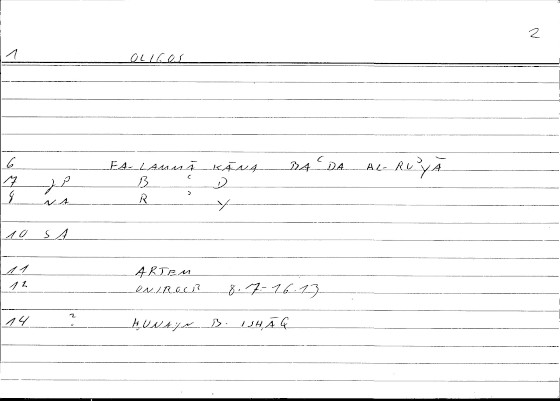 2
1 OLIGOS
6 FA-LAMMĀ KĀNA BAʿDA AL-RUʾYĀ
7 JP B ʿ D
9 NA R ʾ Y
10 SA
11 ARTEM
12 ONIROCR 8.7-16.13
14 ? ḤUNAYN B. ISḤĀQ